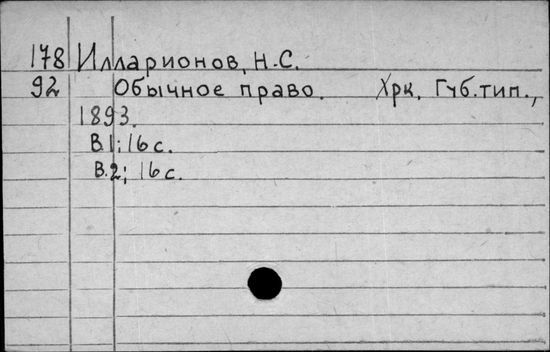 178 Илларионов, Н.С.
92 Обычное право. Хрк. Губ.тип.,
1893.
В.1; 16 с.
В.2; 16 с.